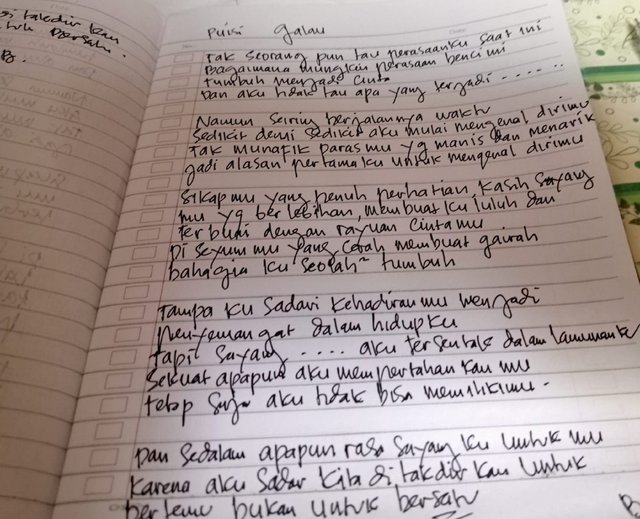 gi takdir kan
untuk bersatu.
B.
Puisi galau
Tak seorang pun tau perasaanku saat ini
Bagaimana mungkin perasaan benci ini
tumbuh menjadi cinta
Dan aku tidak tau apa yang terjadi ......
Namun Seiring berjalannya waktu
Sedikit demi sedikit aku mulai mengenal dirimu
Tak munafik paras mu yg manis dan menarik
jadi alasan pertama ku untuk mengenal dirimu
Sikap mu yang penuh perhatian, Kasih Sayang
mu yg berlebihan, membuat ku luluh dan
terbuai dengan rayuan cintamu
Di senyum mu yang cerah membuat gairah
bahagia ku seolah² tumbuh
Tampa ku Sadari Kehadiran mu menjadi
Penyemangat dalam hidupku
Tapi Sayang .... aku tersentak dalam lamunanku
Sekuat apapun aku mempertahan kan mu
tetap Saja aku tidak bisa memilikimu.
Dan Sedalam apapun rasa Sayang ku Untuk mu
Karena aku Sadar Kita di takdir kan Untuk
bertemu bukan untuk bersatu
B